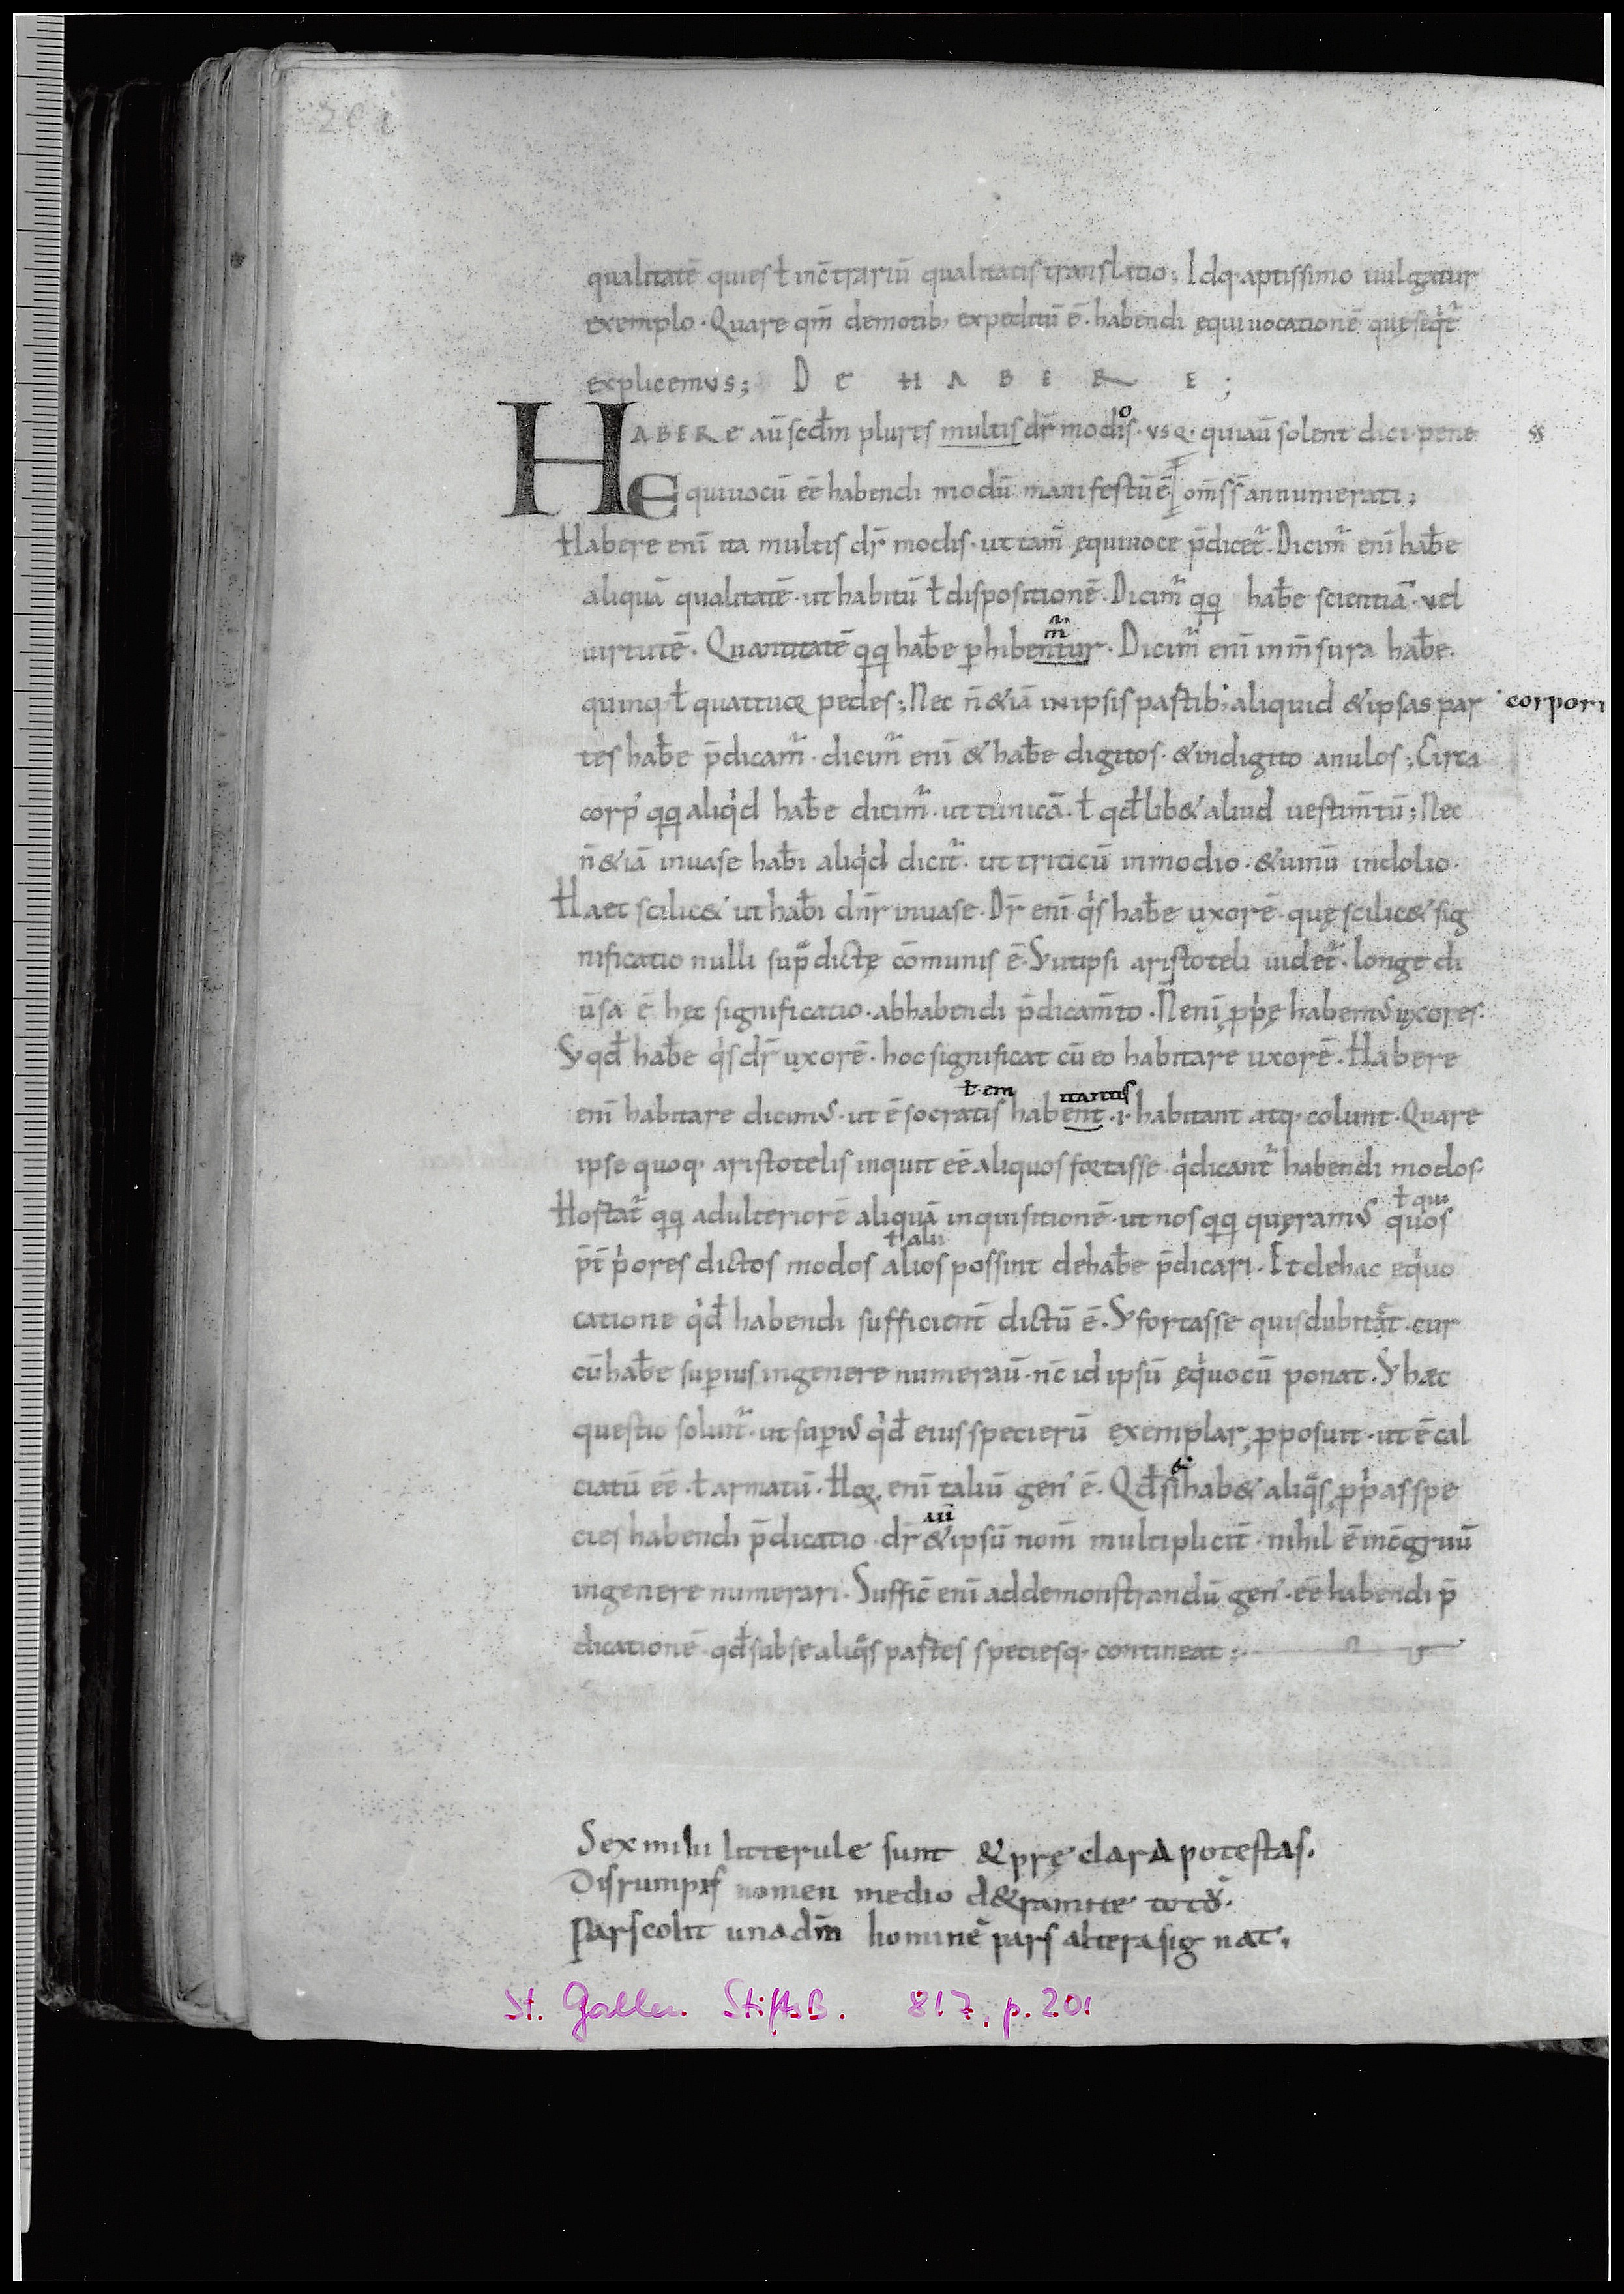 201
qualitatē quies ł incͣtrariū qualitatis translatio; Idq· aptissimo uulgatur
exemplo· Quare qm̄ demotib; expeditū ē· habendi ęquiuocationē quę seqͥt᷑
explicemus; DE HABERE;
HABERE aū scd̄m plures multis dr̄ modis· usq· quiaū solent dici· pene
Equiuocū eē habendi modū manifestū ē om̄s sͭ annumerati;
Habere enī ita multis dr̄ modis· ut tam̄ ęquiuoce p̄dicet᷑· Dicim᷑ enī hab̄e
aliquā qualitatē· ut habitū ł dispositionē· Dicim᷑ qq̨ hab̄e scientiā· vel
m̄
uirtutē· Quantitatē qq̨ hab̄e phibentur· Dicim᷑ enī in m̄sura hab̄e·
quinq· ł quattuor pedes; Nec n̄ &iā in ipsis partib; aliquid & ipsas par corpori
tes hab̄e p̄dicam᷑· dicim᷑ enī & hab̄e digitos· & indigito anulos; Circa
corp' qq̨ aliqͥd hab̄e dicim᷑· ut tunicā· ł qd̄lib& aliud uestim̄tū; Nec
n̄ &iā inuase hab̄i aliqͥd dicit᷑· ut triticū inmodio· & uinū indolio·
Haec scilic& ut hab̄i dn̄r inuase· Dr̄ enī qͥs hab̄e uxorē· quę scilic& sig
nificatio nulli sup̄dictę cōmunis ē· S; utipsi aristoteli uidet᷑· longe di
ūsa ē hęc significatio· abhabendi p̄dicam̄to· N̄ enī ꝓpͥę habem' uxores·
S; qd̄ hab̄e qͥs dr̄ uxorē· hoc significat cū eo habitare uxorē· Habere
ł em itantis
enī habitare dicim'· ut ē socratis habent ·i· habitant atq· colunt· Quare
ipse quoq· aristotelis inquit eē aliquos fortasse· qͥ dicant᷑ habendi modos·
ł qui
Hortat᷑ qq̨ adulteriorē aliquā inquisitionē· ut nos qq̨ quęram' quos
ł alii
p̄t pͥores dictos modos alios possint dehab̄e p̄dicari· Et dehac eqͥuo
catione qͥd̄ habendi sufficient̄ dictū ē· S; fortasse quis dubitat· cur
cū hab̄e superius ingenere numeraū· nc̄ id ipsū ęqͥuocū ponat· S; haec
questio soluit᷑· ut superi' qͥd̄ eius specierū exemplar ꝓposuit· ut ē cal
ciatū eē· ł armatū· Hoꝝ enī taliū gen' ē· Qd̄ si hab& aliqͣs ꝓpͥas spe
aū
cies habendi p̄dicatio· dr̄ & ipsū nom̄ multiplicit̄· nihil ē incͣgruū
ingenere numerari· Suffic̄ enī addemonstrandū gen'· eē habendi p̄
dicationē· qd̄ sub se aliqͣs partes speciesq· contineat;
Sex mihi litterule sunt & pręclara potestas.
Disrumpis nomen medio d& ramite totū.
Pars colit una dm̄ hominē pars altera signat.
St. Gallen StiftsB. 817, p. 201